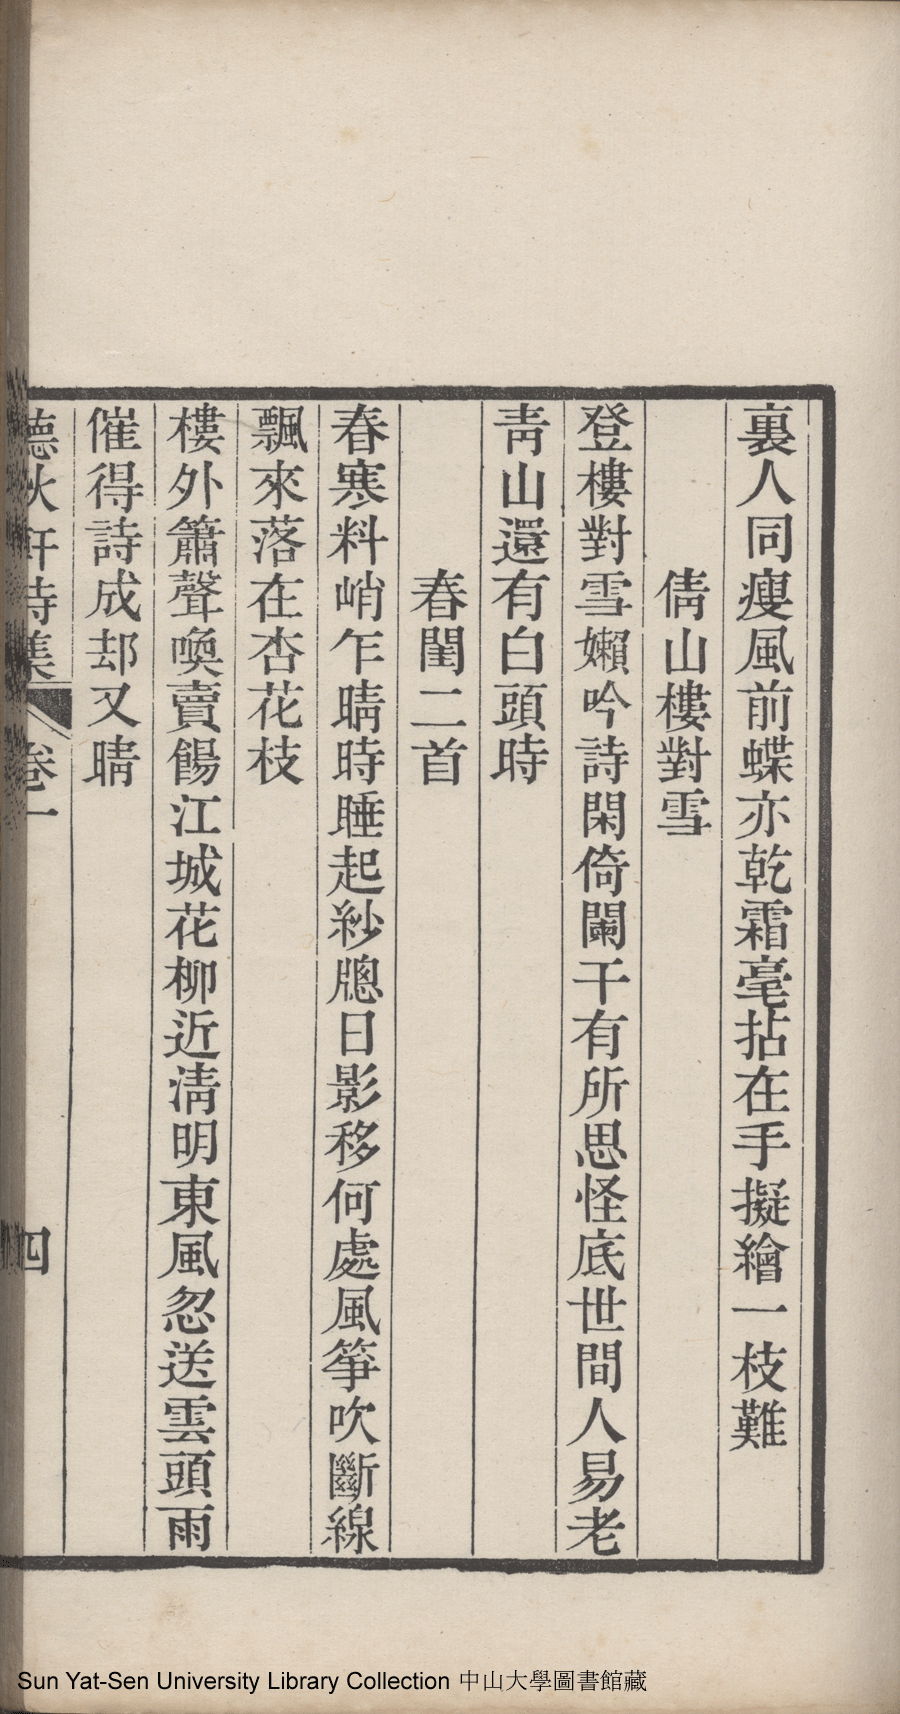 裏人同瘦風前蝶亦乾霜毫拈在手擬繪一枝難
倩山樓對雪
登樓對雪嬾吟詩閑倚闌干有所思怪底世間人易老
靑山還有白頭時
春閨二首
春寒料峭乍晴時睡起紗牕日影移何處風箏吹斷線
飄來落在杏花枝
樓外簫聲喚賣餳江城花柳近淸明東風忽送雲頭雨
催得詩成却又晴
德秋軒詩集
卷一
四
Sun Yat-Sen University Library Collection 中山大學圖書館藏